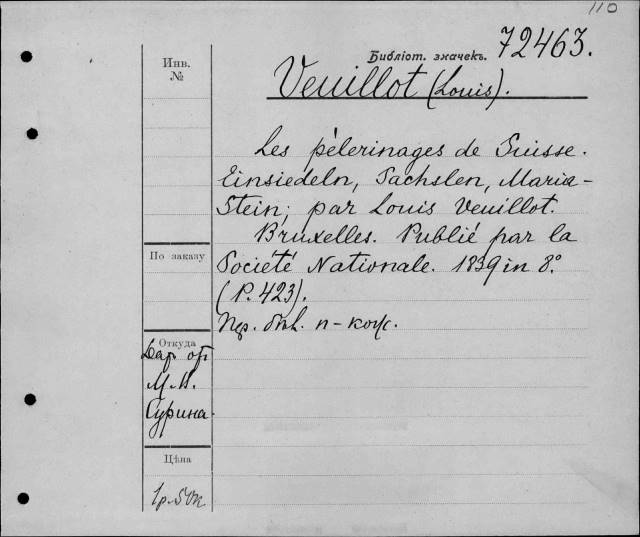 110
Библіот. значекъ. 72463.
Инв.
№
Veuillot (Louis).
Les pèlerinages de Suisse.
Einsiedeln, Sachslen, Maria-
Stein; par Louis Veuillot.
Bruxelles. Publié par la
По заказу
Société Nationale. 1839 in 8°.
(P. 423).
Пер. п-кож.
Откуда
Дар от
М. И.
Сурина.
Цѣна
1р. 50к